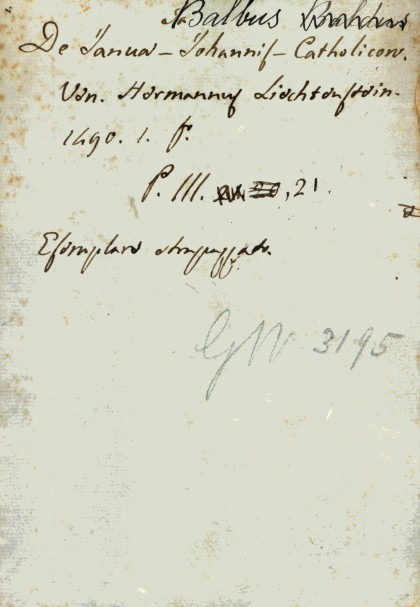 Balbus
De Janua - Johannis - Catholicon.
Ven. Hermannus Liechtenstein.
1490. 1. f.
P. III. 21.
Esemplare strapazzato.
GW 3195